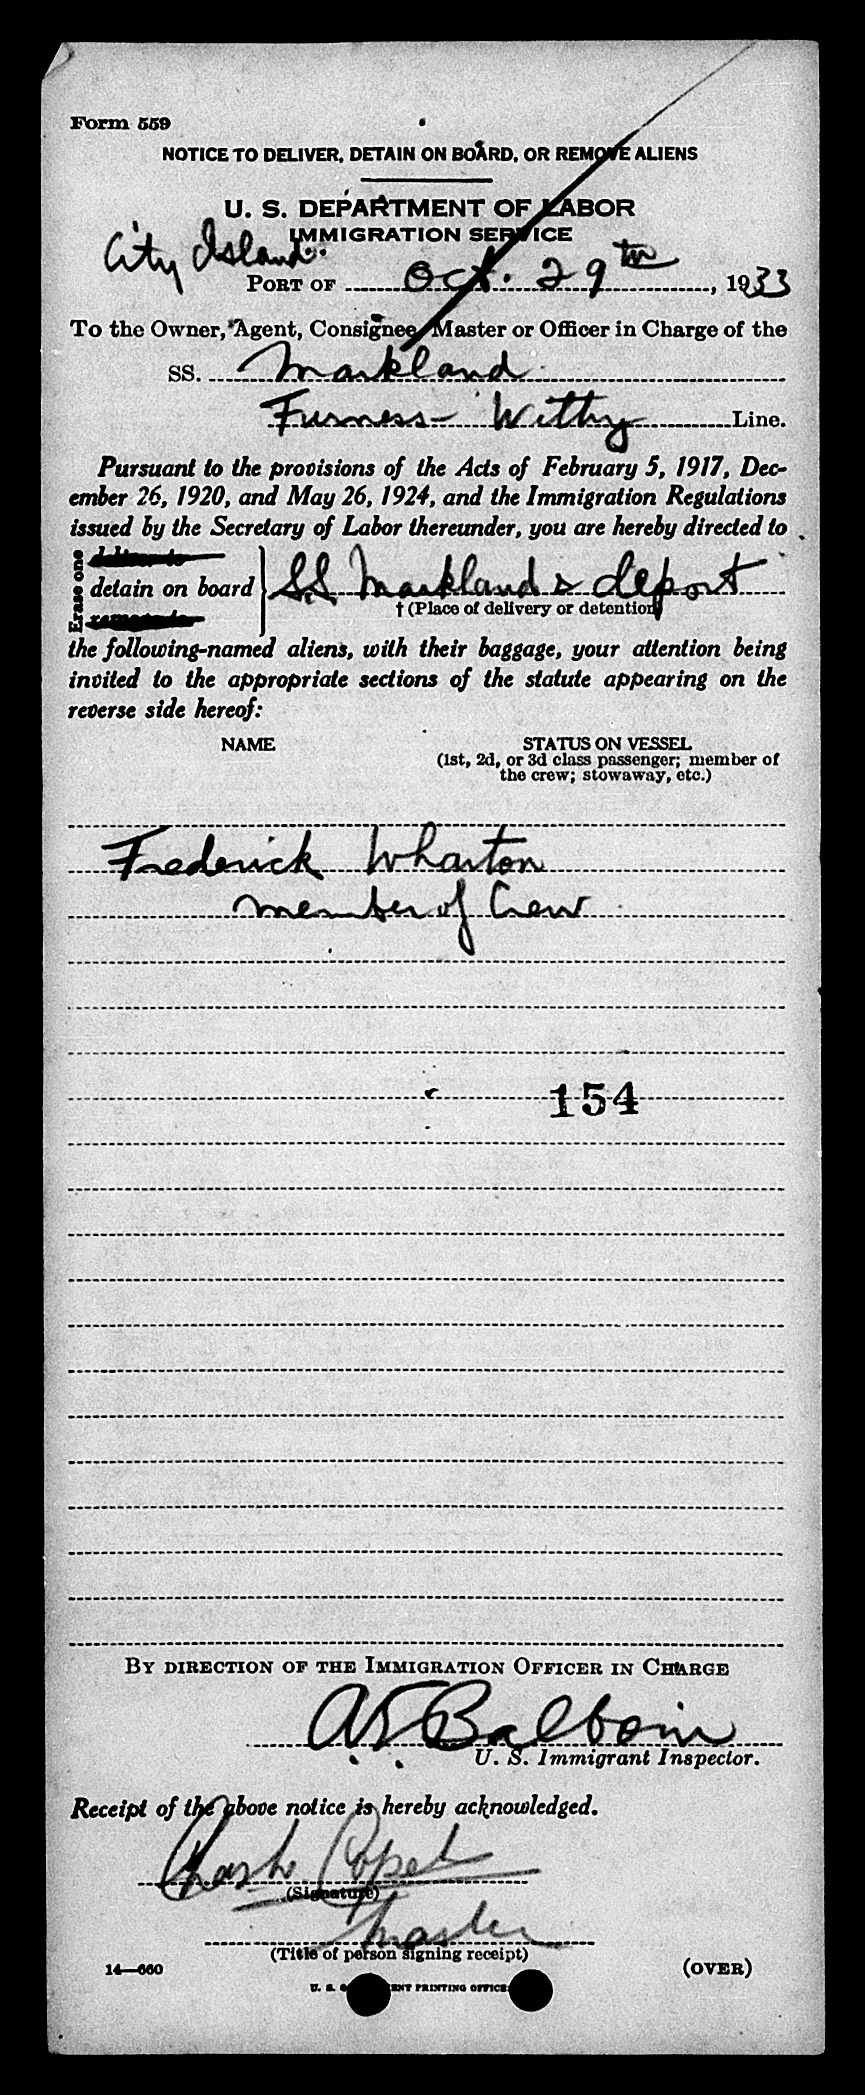 Form 559
NOTICE TO DELIVER, DETAIN ON BOARD, OR REMOVE ALIENS
U. S. DEPARTMENT OF LABOR
IMMIGRATION SERVICE
City Island
PORT OF Oct. 29th, 1933
To the Owner, Agent, Consignee, Master or Officer in Charge of the
SS. Markland
Furness-Withy Line.
Pursuant to the provisions of the Acts of February 5, 1917, Dec-
ember 26, 1920, and May 26, 1924, and the Immigration Regulations
issued by the Secretary of Labor thereunder, you are hereby directed to
Erase one
detain on board } S.S. Markland & deport
† (Place of delivery or detention)
the following-named aliens, with their baggage, your attention being
invited to the appropriate sections of the statute appearing on the
reverse side hereof:
NAME STATUS ON VESSEL
(1st, 2d, or 3d class passenger; member of
the crew; stowaway, etc.)
Frederick Wharton
member of Crew
154
BY DIRECTION OF THE IMMIGRATION OFFICER IN CHARGE
U. S. Immigrant Inspector.
Receipt of the above notice is hereby acknowledged.
(Signature)
Master
(Title of person signing receipt)
14—660 (OVER)
U. S. PRINTING OFFICE